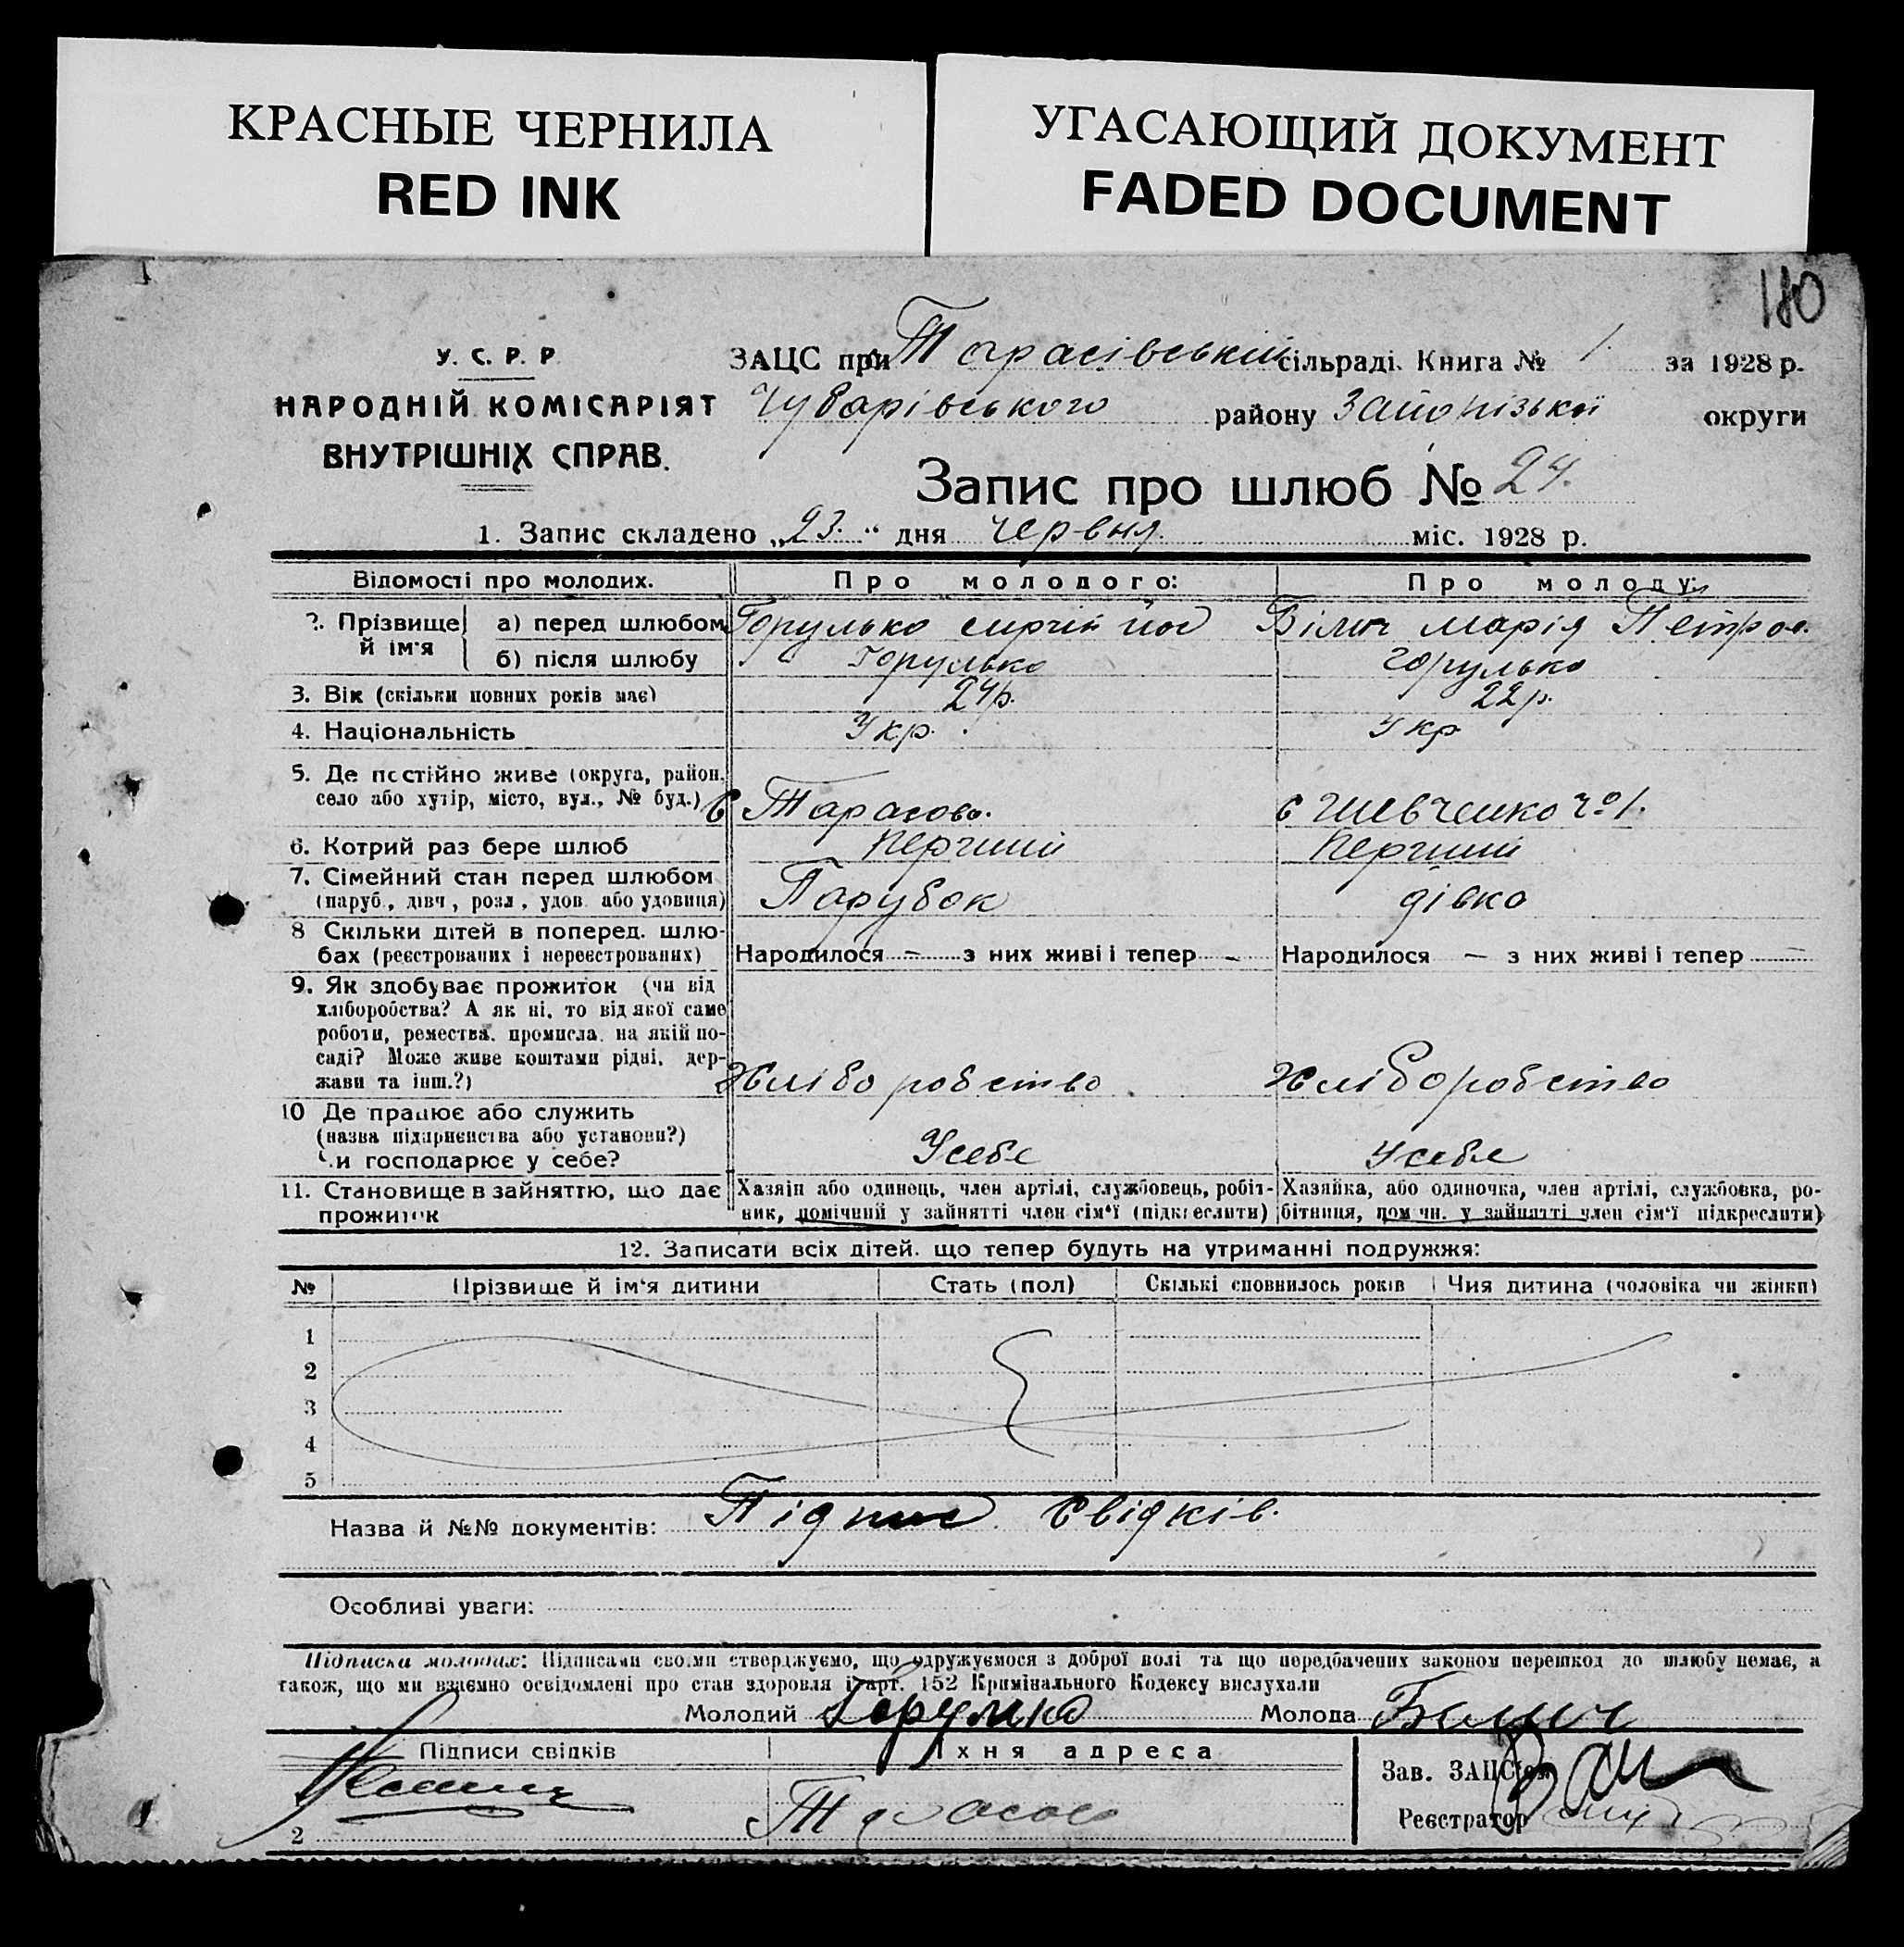 КРАСНЫЕ ЧЕРНИЛА
RED INK
УГАСАЮЩИЙ ДОКУМЕНТ
FADED DOCUMENT
180
У. С. Р. Р.
НАРОДНІЙ КОМІСАРІЯТ
ВНУТРІШНІХ СПРАВ.
ЗАЦС при Тарасівській сільраді. Книга № 1. за 1928 р.
Чубарівського району Запорізької округи
Запис про шлюб № 24.
1. Запис складено „23.“ дня червня міс. 1928 р.
Відомості про молодих. Про молодого: Про молоду:
2. Прізвище й ім'я а) перед шлюбом Горулько Сиргій Йос Білич Марія Петров.
б) після шлюбу Горулько Горулько
3. Вік (скільки повних років має) 24р. 22р.
4. Національність Укр. Укр
5. Де постійно живе (округа, район,
село або хутір, місто, вул., № буд.) с Тарасовк. с Шевченко №1.
6. Котрий раз бере шлюб Перший Перший
7. Сімейний стан перед шлюбом
(паруб., дівч., розл., удов. або удовиця) Парубок дівка
8 Скільки дітей в поперед. шлю-
бах (реєстрованих і нереєстрованих) Народилося — з них живі і тепер — Народилося — з них живі і тепер —
9. Як здобуває прожиток (чи від
хліборобства? А як ні, то від якої саме
роботи, ремества, промисла, на якій по-
саді? Може живе коштами рідні, дер-
жави та інш.?) Хліборобство Хліборобство
10 Де працює або служить
(назва підприємства або установи?)
Чи господарює у себе? У себе У себе
11. Становище в зайняттю, що дає прожиток
Хазяїн або одинець, член артілі, службовець, робіт-
ник, помічний у зайнятті член сім'ї (підкреслити)
Хазяйка, або одиночка, член артілі, службовка, ро-
бітниця, помічн. у зайнятті член сім'ї підкреслити)
12. Записати всіх дітей, що тепер будуть на утриманні подружжя:
№ Прізвище й ім'я дитини Стать (пол) Скількі сповнилось років Чия дитина (чоловіка чи жінки)
1
2
3
4
5
Назва й №№ документів: Підпис Свідків.
Особливі уваги:
Підписка молодих: Підписами своїми стверджуємо, що одружуємося з доброї волі та що передбачених законом перешкод до шлюбу немає, а
також, що ми взаємно освідомлені про стан здоровля і арт. 152 Кримінального Кодексу вислухали
Молодий Горулко Молода Белич
Підписи свідків Їхня адреса
Зав. ЗАЦС'ом
Реєстратор
2